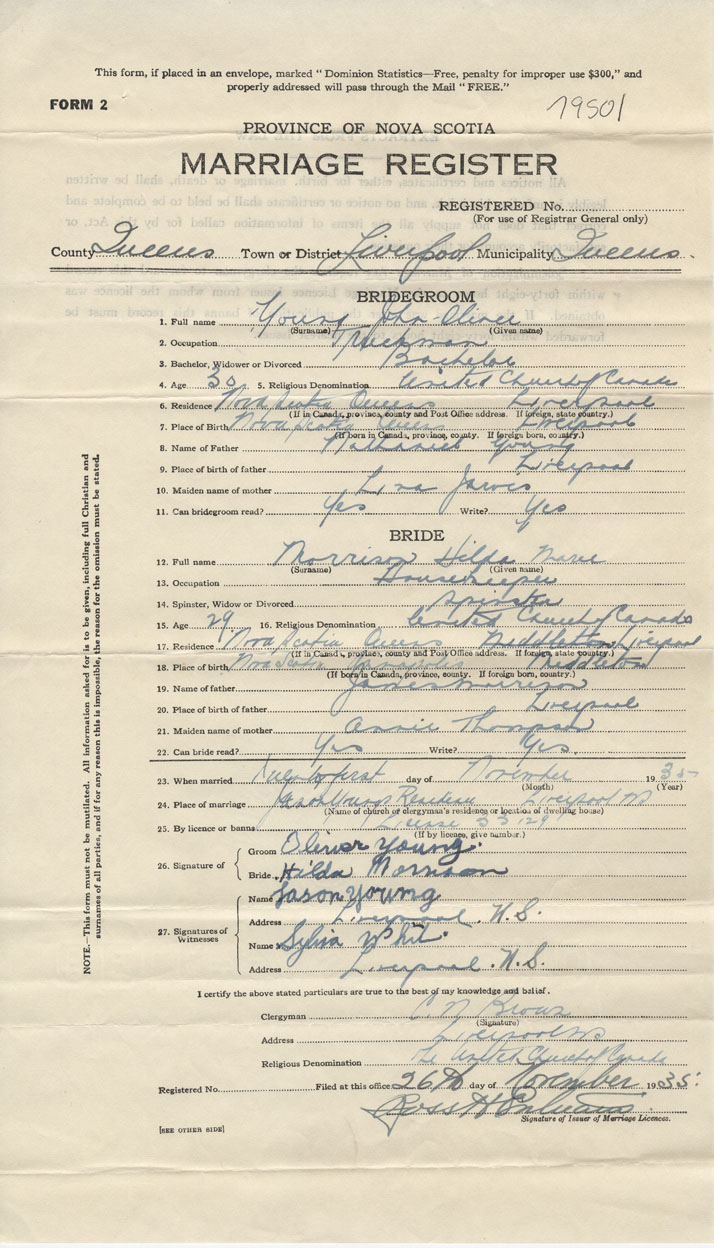 This form, if placed in an envelope, marked "Dominion Statistics—Free, penalty for improper use $300," and
properly addressed will pass through the Mail "FREE."
FORM 2
19501
PROVINCE OF NOVA SCOTIA
MARRIAGE REGISTER
REGISTERED No.
(For use of Registrar General only)
County Queens Town or District Liverpool Municipality Queens
BRIDEGROOM
1. Full name Young John Oliver
(Surname) (Given name)
2. Occupation Truckman
3. Bachelor, Widower or Divorced Bachelor
4. Age 30 5. Religious Denomination United Church of Canada
6. Residence Nova Scotia Queens Liverpool
(If in Canada, province, county and Post Office address. If foreign, state country.)
7. Place of Birth Nova Scotia Queens Liverpool
(If born in Canada, province, county. If foreign born, country.)
8. Name of Father Nathaniel Young
9. Place of birth of father Liverpool
10. Maiden name of mother Jarvis
11. Can bridegroom read? Yes Write? Yes
BRIDE
12. Full name Morrison Hilda Marie
(Surname) (Given name)
13. Occupation Housekeeper
14. Spinster, Widow or Divorced Spinster
15. Age 29 16. Religious Denomination United Church of Canada
17. Residence Nova Scotia Queens Liverpool
(If in Canada, province, county and Post Office address. If foreign, state country.)
18. Place of birth Nova Scotia Annapolis Middleton
(If born in Canada, province, county. If foreign born, country.)
19. Name of father James Morrison
20. Place of birth of father Liverpool
21. Maiden name of mother Annie Thompson
22. Can bride read? Yes Write? Yes.
23. When married Twenty first day of November 1935
(Month) (Year)
24. Place of marriage Liverpool NS
(Name of church or clergyman's residence or location of dwelling house)
25. By licence or banns License
(If by licence, give number.)
26. Signature of
Groom Oliver Young.
Bride Hilda Morrison
27. Signatures of Witnesses
Name Jason Young
Address Liverpool. N.S.
Name Sylvia
Address Liverpool. N.S.
I certify the above stated particulars are true to the best of my knowledge and belief.
Clergyman
(Signature)
Address Liverpool NS
Religious Denomination The United Church of Canada
Registered No. Filed at this office 26th day of November 1935.
Ross H
Signature of Issuer of Marriage Licences.
[SEE OTHER SIDE]
NOTE.—This form must not be mutilated. All information asked for is to be given, including full Christian and
surnames of all parties, and if for any reason this is impossible, the reason for the omission must be stated.